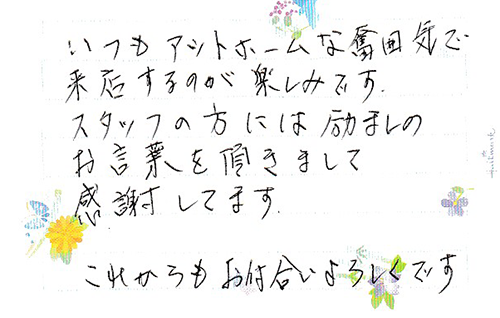 いつもアットホームな奮囲気で
来店するのが楽しみです.
スタッフの方には励ましの
お言葉を頂きまして
感謝してます.
これからもお付合いよろしくです